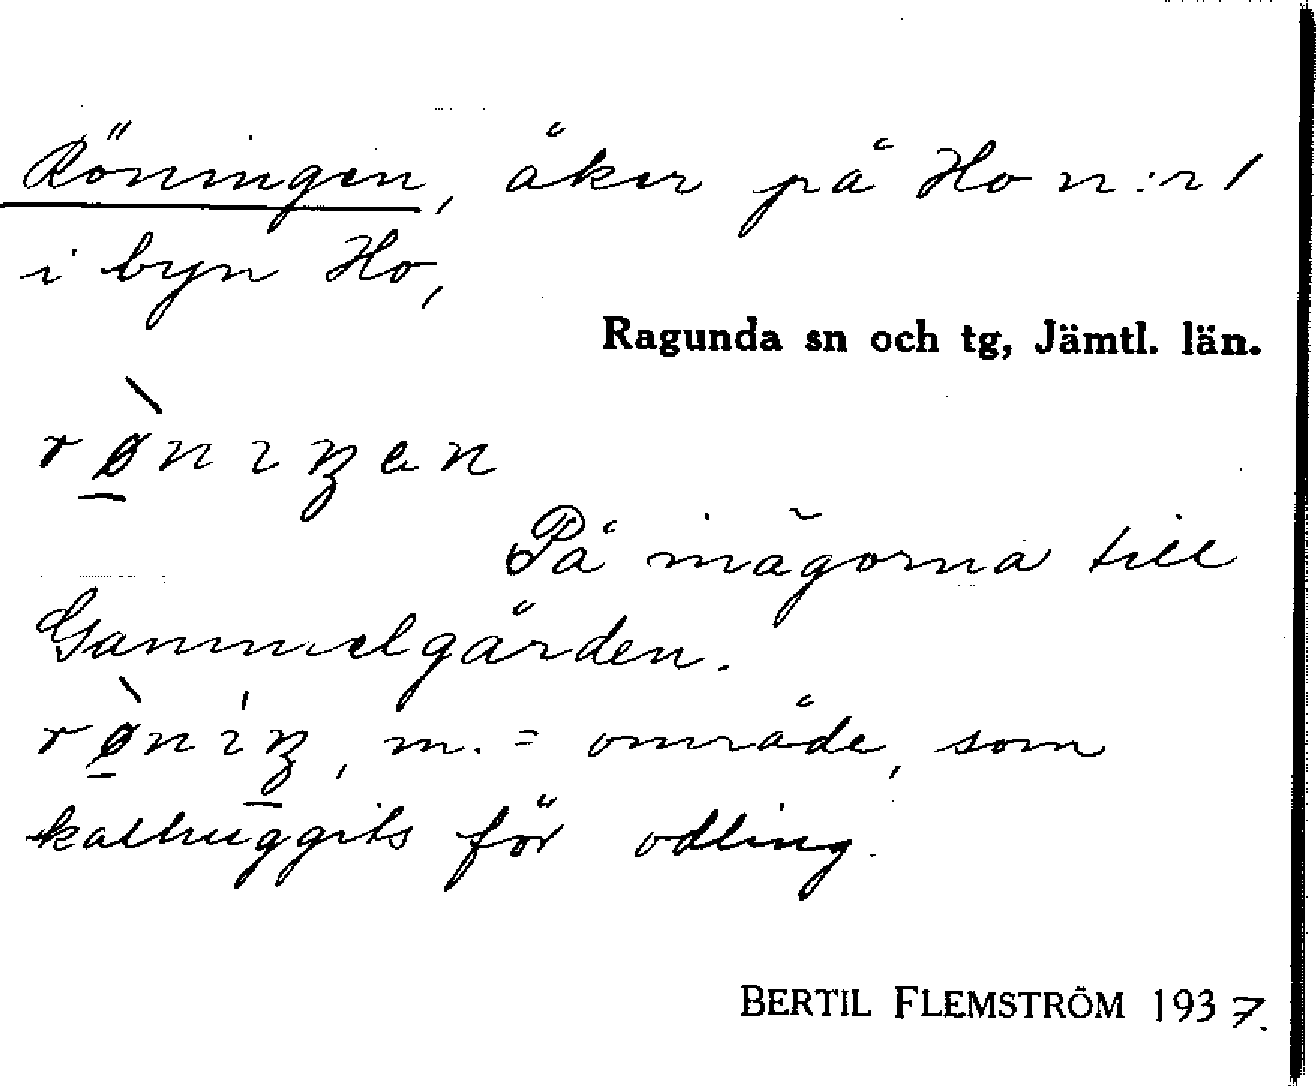 Röningen, åker på Ho n:r 1
i byn Ho,
Ragunda sn och tg, Jämtl. län.
rø̲̀nıŋen
På inägorna till
Gammelgården.
rø̲̀nıŋ, m. = område, som
kalhuggits för odling.
BERTIL FLEMSTRÖM 1937.